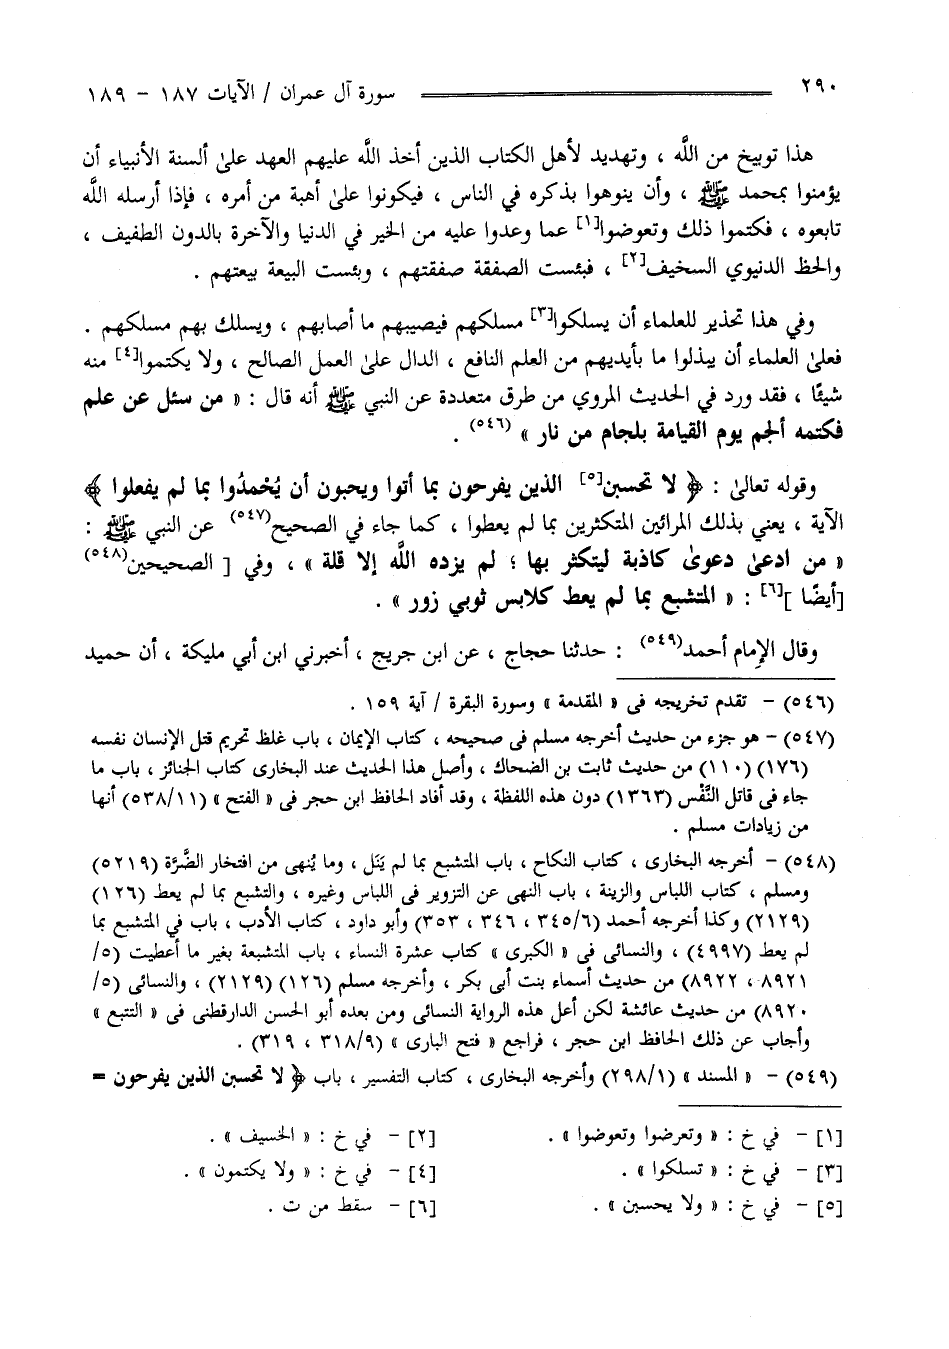 ٢٩٠ سورة آل عمران / الآيات ١٨٧ - ١٨٩
هذا توبيخ من اللَّه ، وتهديد لأهل الكتاب الذين أخذ اللَّه عليهم العهد علىٰ ألسنة الأنبياء أن
يؤمنوا بمحمد ﷺ ، وأن ينوهوا بذكره في الناس ، فيكونوا علىٰ أهبة من أمره ، فإذا أرسله اللَّه
تابعوه ، فكتموا ذلك وتعوضوا[١] عما وعدوا عليه من الخير في الدنيا والآخرة بالدون الطفيف ،
والحظ الدنيوي السخيف[٢] ، فبئست الصفقة صفقتهم ، وبئست البيعة بيعتهم .
وفي هذا تحذير للعلماء أن يسلكوا[٣] مسلكهم فيصيبهم ما أصابهم ، ويسلك بهم مسلكهم .
فعلىٰ العلماء أن يبذلوا ما بأيديهم من العلم النافع ، الدال علىٰ العمل الصالح ، ولا يكتموا[٤] منه
شيئًا ، فقد ورد في الحديث المروي من طرق متعددة عن النبي ﷺ أنه قال : « من سئل عن علم
فكتمه ألجم يوم القيامة بلجام من نار » (٥٤٦) .
وقوله تعالىٰ : ﴿ لا تحسبن[٥] الذين يفرحون بما أتوا ويحبون أن يُحْمدُوا بما لم يفعلوا ﴾
الآية ، يعني بذلك المرائين المتكثرين بما لم يعطوا ، كما جاء في الصحيح(٥٤٧) عن النبي ﷺ :
« من ادعىٰ دعوىٰ كاذبة ليتكثر بها ؛ لم يزده اللَّه إلا قلة » ، وفي [ الصحيحين(٥٤٨)
[أيضًا ][٦] : « المتشبع بما لم يعط كلابس ثوبي زور » .
وقال الإمام أحمد(٥٤٩) : حدثنا حجاج ، عن ابن جريج ، أخبرني ابن أبي مليكة ، أن حميد
(٥٤٦) - تقدم تخريجه فى « المقدمة » وسورة البقرة / آية ١٥٩ .
(٥٤٧) - هو جزء من حديث أخرجه مسلم فى صحيحه ، كتاب الإيمان ، باب غلظ تحريم قتل الإنسان نفسه
(١٧٦) (١١٠) من حديث ثابت بن الضحاك ، وأصل هذا الحديث عند البخارى كتاب الجنائز ، باب ما
جاء فى قاتل النَّفْس (١٣٦٣) دون هذه اللفظة ، وقد أفاد الحافظ ابن حجر فى « الفتح » (٥٣٨/١١) أنها
من زيادات مسلم .
(٥٤٨) - أخرجه البخارى ، كتاب النكاح ، باب المتشبع بما لم يَنَل ، وما يُنهى من افتخار الضَّرَّة (٥٢١٩)
ومسلم ، كتاب اللباس والزينة ، باب النهى عن التزوير فى اللباس وغيره ، والتشبع بما لم يعط (١٢٦)
(٢١٢٩) وكذا أخرجه أحمد (٣٤٥/٦ ، ٣٤٦ ، ٣٥٣) وأبو داود ، كتاب الأدب ، باب في المتشبع بما
لم يعط (٤٩٩٧) ، والنسائى فى « الكبرى » كتاب عشرة النساء ، باب المتشبعة بغير ما أعطيت (٥/
٨٩٢١ ، ٨٩٢٢) من حديث أسماء بنت أبى بكر ، وأخرجه مسلم (١٢٦) (٢١٢٩) ، والنسائى (٥/
٨٩٢٠) من حديث عائشة لكن أعل هذه الرواية النسائى ومن بعده أبو الحسن الدارقطنى فى « التتبع »
وأجاب عن ذلك الحافظ ابن حجر ، فراجع « فتح البارى » (٣١٨/٩ ، ٣١٩) .
(٥٤٩) - « المسند » (٢٩٨/١) وأخرجه البخارى ، كتاب التفسير ، باب ﴿ لا تحسبن الذين يفرحون =
[١] - في خ : « وتعرضوا وتعوضوا » . [٢] - في خ : « الخسيف » .
[٣] - في خ : « تسلكوا » . [٤] - في خ : « ولا يكتمون » .
[٥] - في خ : « ولا يحسبن » . [٦] - سقط من ت .